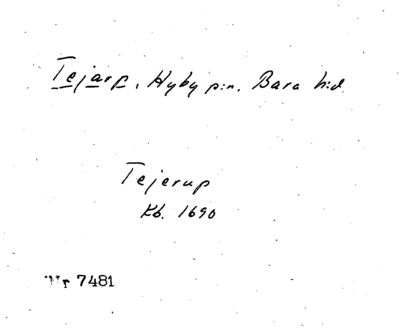 Tejarp, Hyby p:n. Bara hd.
Tejerup
Kb. 1690
Nr 7481